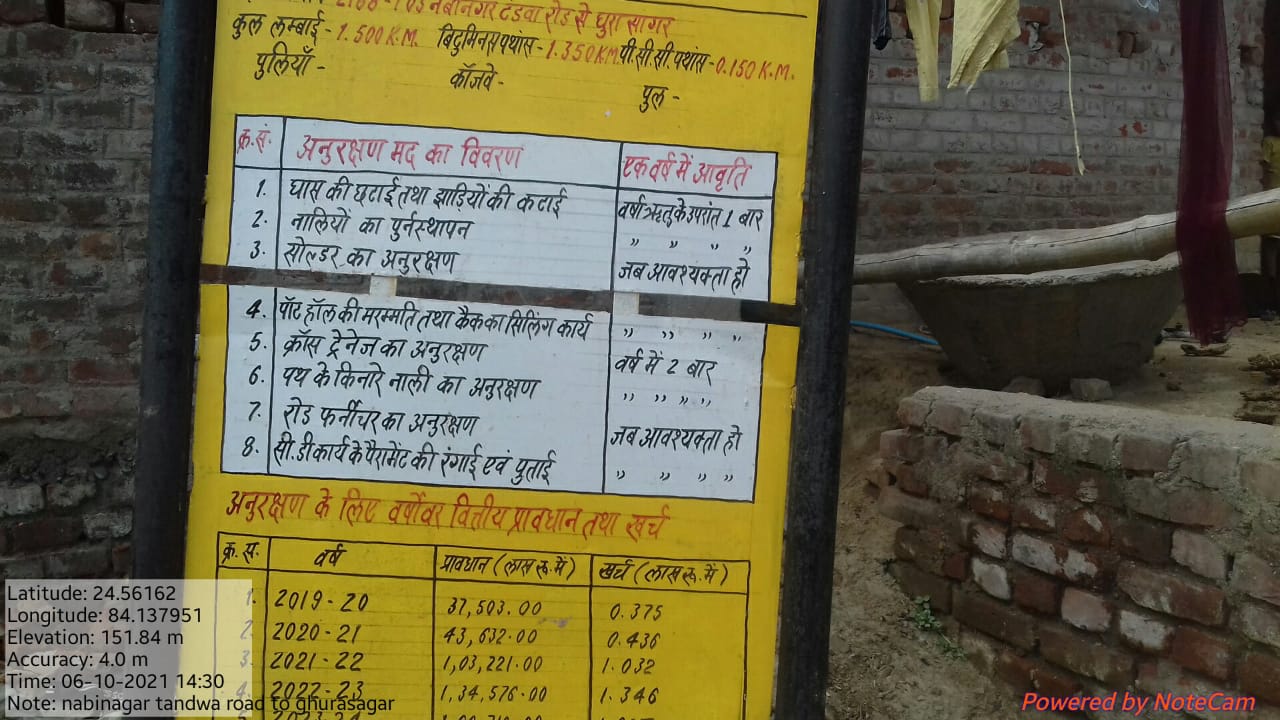 नबीनगर टंडवा रोड से घुरा सागर
कुल लम्बाई - 1.500 K.M. बिटुमिनस पथांस - 1.350 KM पी.सी.सी. पथांस - 0.150 K.M.
पुलियाँ - कॉजवे - पुल -
क्र.सं. अनुरक्षण मद का विवरण एक वर्ष में आवृति
1. घास की छटाई तथा झाड़ियों की कटाई वर्षा ऋतु के उपरांत 1 बार
2. नालियों का पुर्नस्थापन " " " "
3. सोल्डर का अनुरक्षण जब आवश्यक्ता हो
4. पॉट हॉल की मरम्मति तथा कैक का सिलिंग कार्य " " " "
5. क्रॉस ड्रेनेज का अनुरक्षण वर्ष में 2 बार
6. पथ के किनारे नाली का अनुरक्षण " " " "
7. रोड फर्नीचर का अनुरक्षण जब आवश्यक्ता हो
8. सी.डी कार्य के पैरामेंट की रंगाई एवं पुताई " " " "
अनुरक्षण के लिए वर्षोवर वित्तीय प्रावधान तथा खर्च
क्र. स. वर्ष प्रावधान (लास रू. में) खर्च (लास रू. में)
1. 2019-20 37,503.00 0.375
2. 2020-21 43,632.00 0.436
3. 2021-22 1,03,221.00 1.032
4. 2022-23 1,34,576.00 1.346
Latitude: 24.56162
Longitude: 84.137951
Elevation: 151.84 m
Accuracy: 4.0 m
Time: 06-10-2021 14:30
Note: nabinagar tandwa road to ghurasagar
Powered by NoteCam